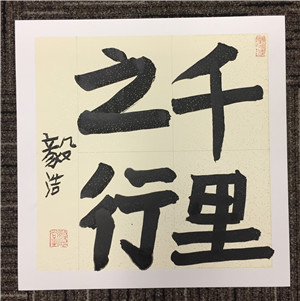 千里
之行
毅浩